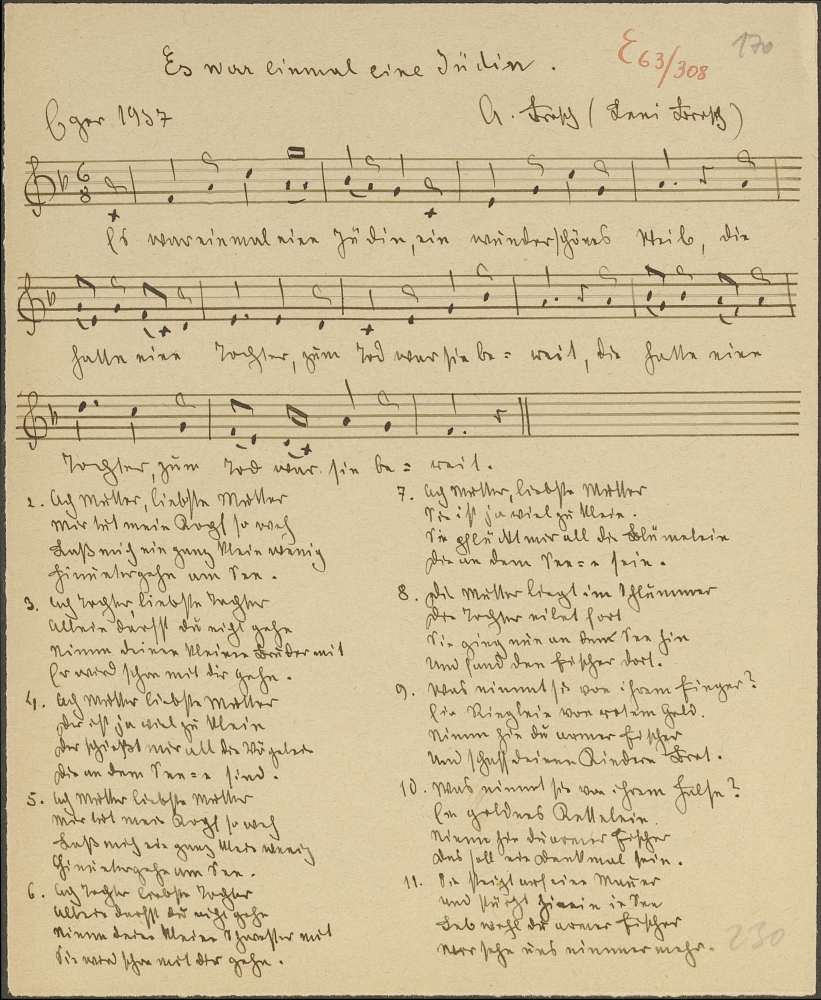 Es war einmal eine Jüdin.
E 63/308
170
Eger 1937
A. Brosch (Leni Brosch)
Es war einmal eine Jüdin, ein wunderschönes Weib, die
hatte eine Tochter, zum Tod war sie be = reit, die hatte eine
Tochter, zum Tod war sie be = reit.
2. Ach Mutter, liebste Mutter
Mir tut mein Kopf so weh
Laß mich ein ganz klein wenig
Hinuntergehn am See.
3. Ach Tochter, liebste Tochter
Allein darfst du nicht gehn
Nimm deinen kleinen Bruder mit
Er wird schon mit dir gehn.
4. Ach Mutter liebste Mutter
Der ist ja viel zu klein
Der schießt mir all die Vögelein
Die an dem See=e sind.
5. Ach Mutter liebste Mutter
Mir tut mein Kopf so weh
Laß mich ein ganz klein wenig
Hinuntergehn am See.
6. Ach Tochter liebste Tochter
Allein darfst du nicht gehn
Nimm deine kleine Schwester mit
Sie wird schon mit dir gehn.
7. Ach Mutter, liebste Mutter
Sie ist ja viel zu klein.
Sie pflückt mir all die Blümelein
Die an dem See=e sein.
8. Die Mutter liegt im Schlummer
Die Tochter eilet fort
Sie ging nun an dem See hin
Und fand den Fischer dort.
9. Was nimmt sie von ihrem Finger?
Ein Ringlein von rotem Gold.
Nimm hin du armer Fischer
Und schaff deinen Kindern Brot.
10. Was nimmt sie von ihrem Halse?
Ein goldnes Kettelein.
Nimm hin du armer Fischer
Das soll ein Denkmal sein.
11. Sie steigt auf eine Mauer
Und stürzt hinein in See
Leb wohl du armer Fischer
Wir sehn uns nimmermehr.
230